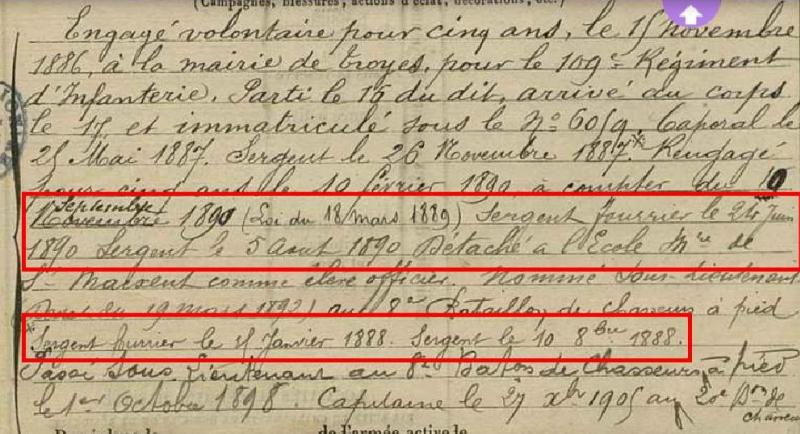 (Campagnes, blessures, actions d'éclat, décorations, etc.)
Engagé volontaire pour cinq ans, le 15 Novembre
1886, à la mairie de Troyes, pour le 109e Régiment
d'Infanterie. Parti le 15 du dit, arrivé au corps
le 17 et immatriculé sous le No 6059. Caporal le
25 Mai 1887. Sergent le 26 Novembre 1887.* Rengagé
pour cinq ans le 10 février 1890 à compter du 10
Septembre
Novembre 1890 (Loi du 18 mars 1889) Sergent fourrier le 24 Juin
1890 Sergent le 5 Aout 1890 Détaché à l'Ecole Mre de
St Maixent comme élève officier. Nommé Sous-Lieutenant
du 19 mars 1892) au 8e Bataillon de chasseurs à pied
* Sergent fourrier le 25 Janvier 1888. Sergent le 10 8bre 1888.
Passé Sous Lieutenant au Baton de Chasseurs à pied
le 1er Octobre 1898. Capitaine le 27 xbre 1905 au 20e Bon de
chasseurs
de l'armée active le